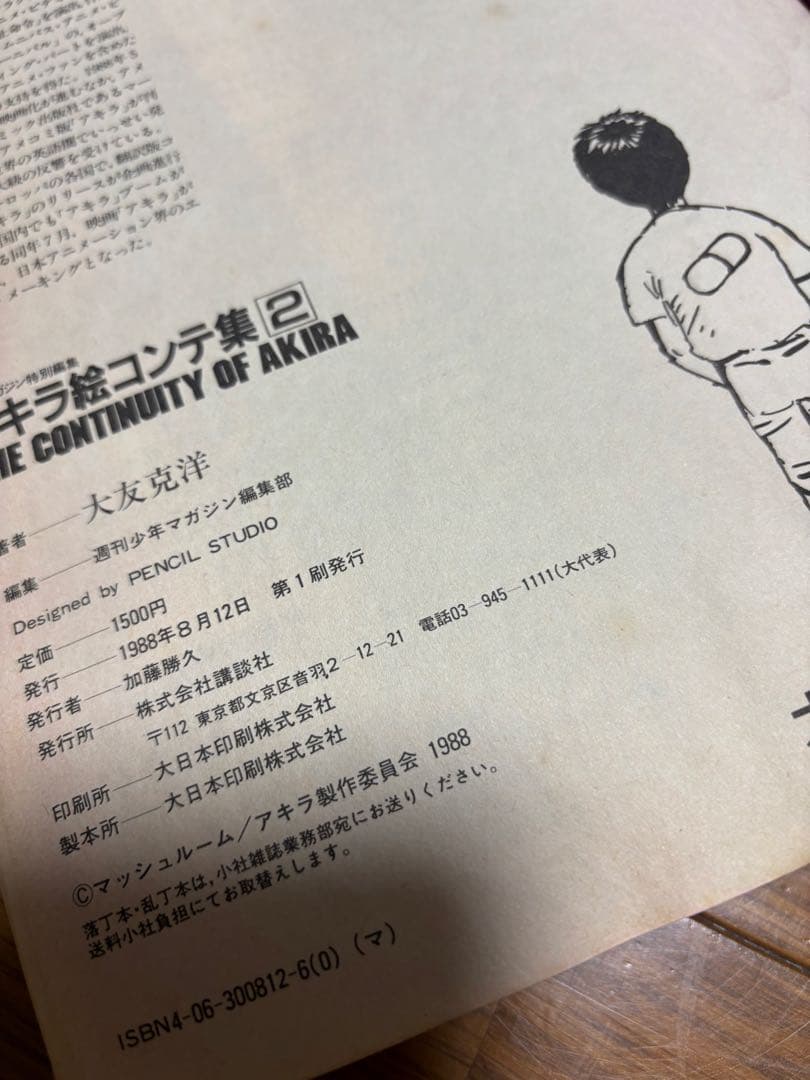 ニバル」の、オープ
ィング・パートを演出、
アニメ・ファンを含めた
支持を得た。1988年5
映画化が進むなか、アメ
ミック出版社であるマー
アメコミ版「アキラ」が刊
界の英語圏でいっせい発
級の反響を受けている。
ーロッパの各国で、翻訳版コ
キラ」のリリースが企画進行
国内でも「アキラ」ブームが
る同年7月、映画「アキラ」が
、日本アニメーション界のエ
メーキングとなった。
ガジン特別編集
キラ絵コンテ集2
HE CONTINUITY OF AKIRA
著者――大友克洋
編集――週刊少年マガジン編集部
Designed by PENCIL STUDIO
定価――1500円
発行――1988年8月12日 第1刷発行
発行者――加藤勝久
発行所――株式会社講談社
〒112 東京都文京区音羽2―12―21 電話03―945―1111(大代表)
印刷所――大日本印刷株式会社
製本所――大日本印刷株式会社
©マッシュルーム/アキラ製作委員会 1988
落丁本・乱丁本は、小社雑誌業務部宛にお送りください。
送料小社負担にてお取替えします。
ISBN4-06-300812-6(0) (マ)